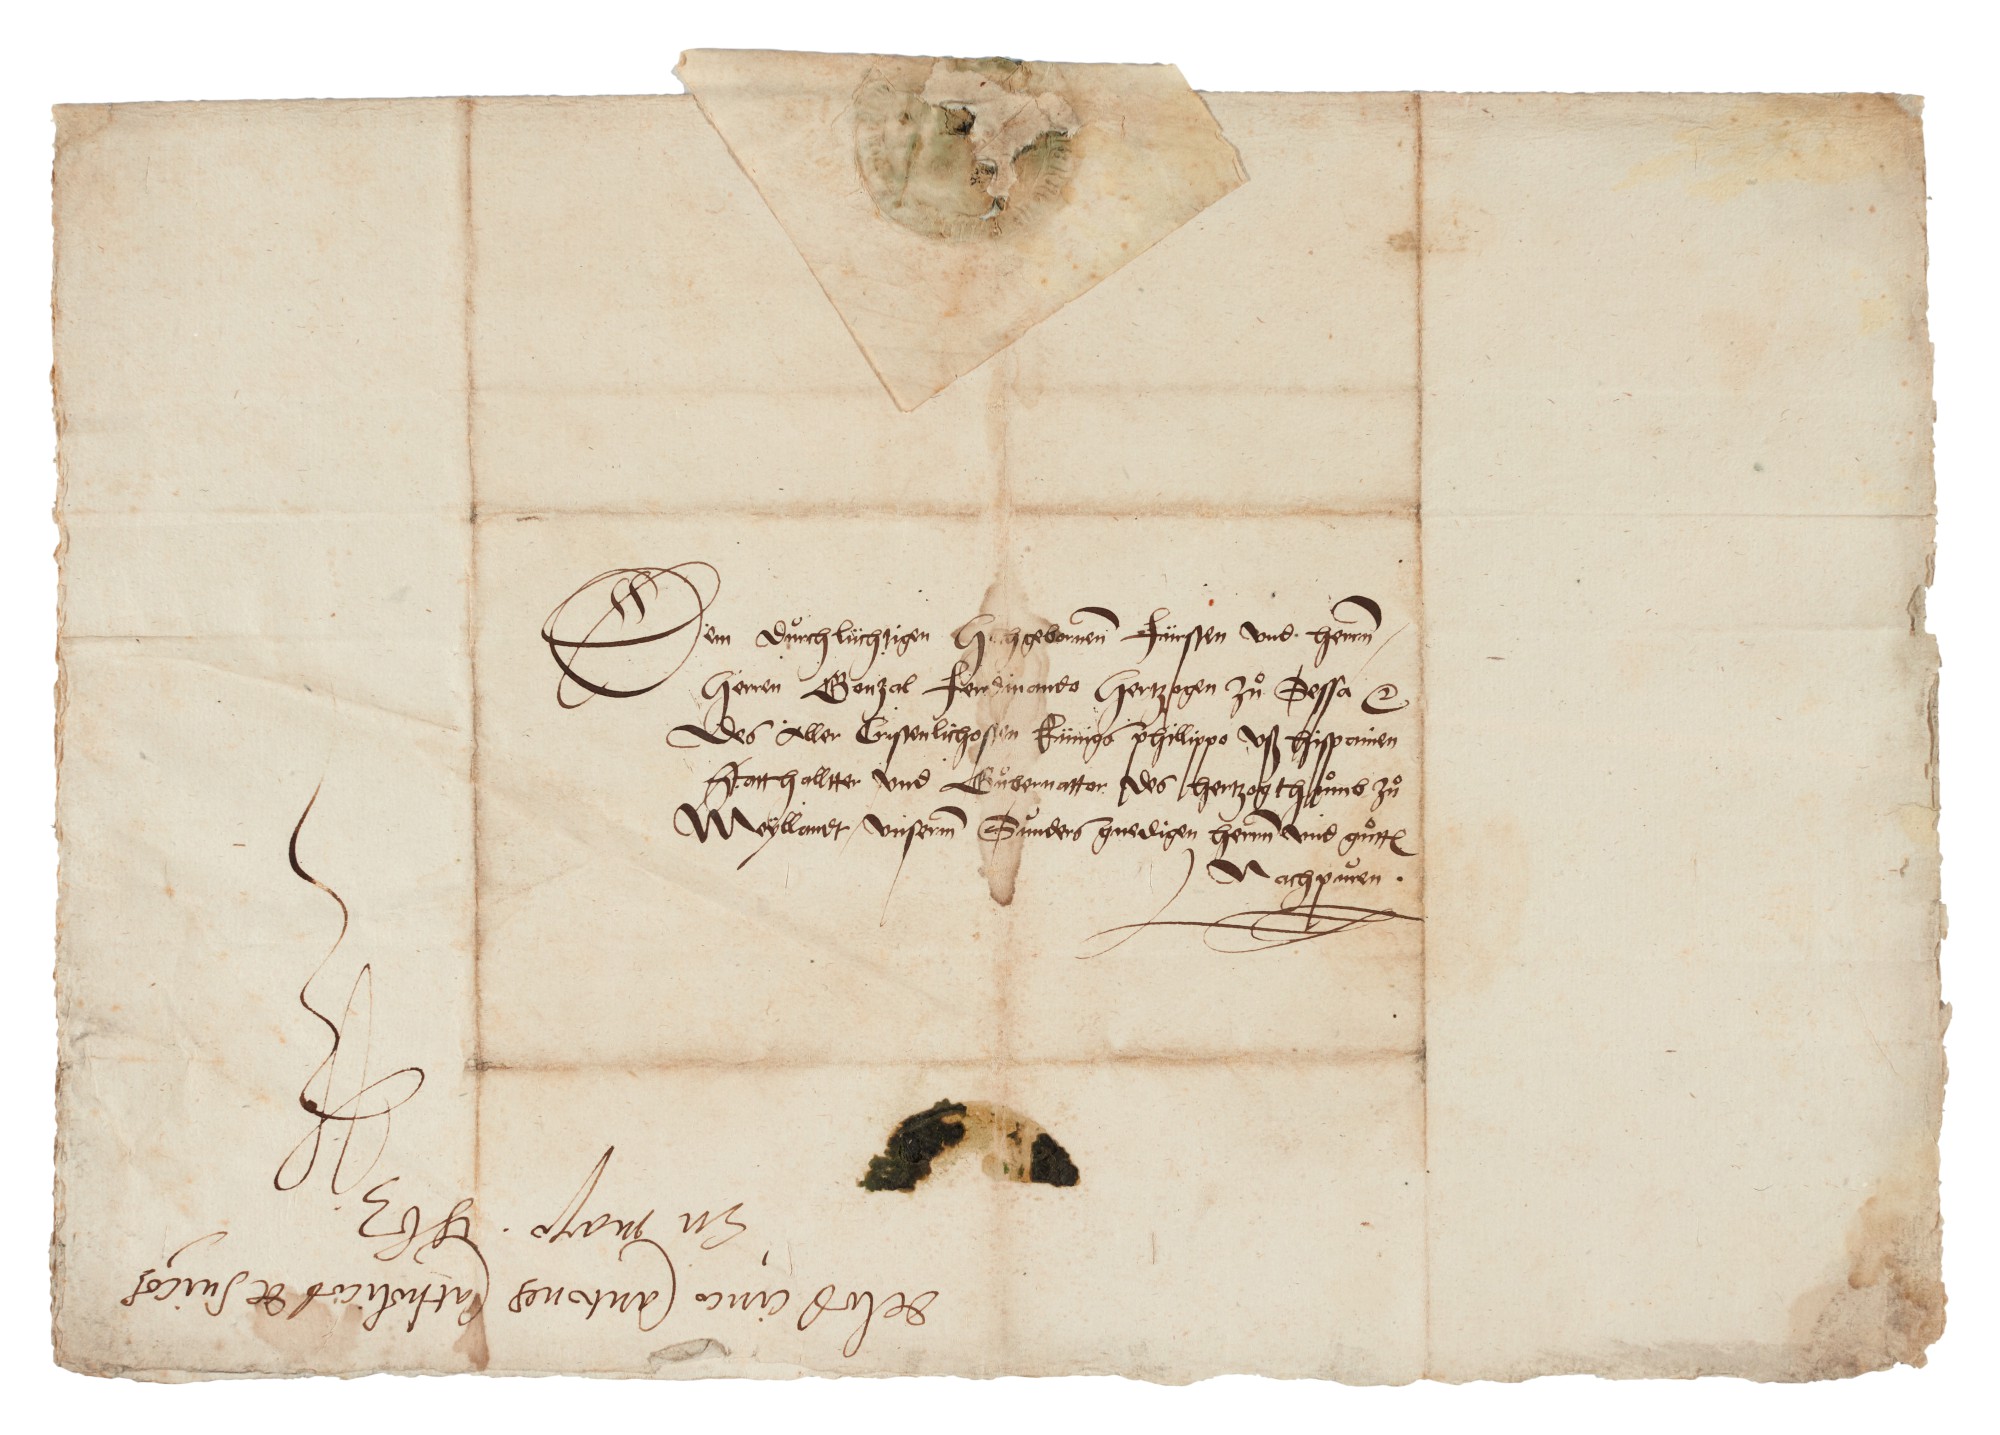 Dem durchlüchtigen Hochgebornnen Fürsten vnd herrnn /
Herren Gonzal Ferdinando Hertzogen zů Sessa
des Aller Cristenlichosten Künigs phillippo vß hispanien
Statthalltter vnd Gůbernattor des hertzogthůmb zů
Meyllandt / vnserm Sunders gnedigen herrnn vnd gůtt
Nachpuren .
de los cinco Cantones Catholicos de suiços
En mayo . 1563